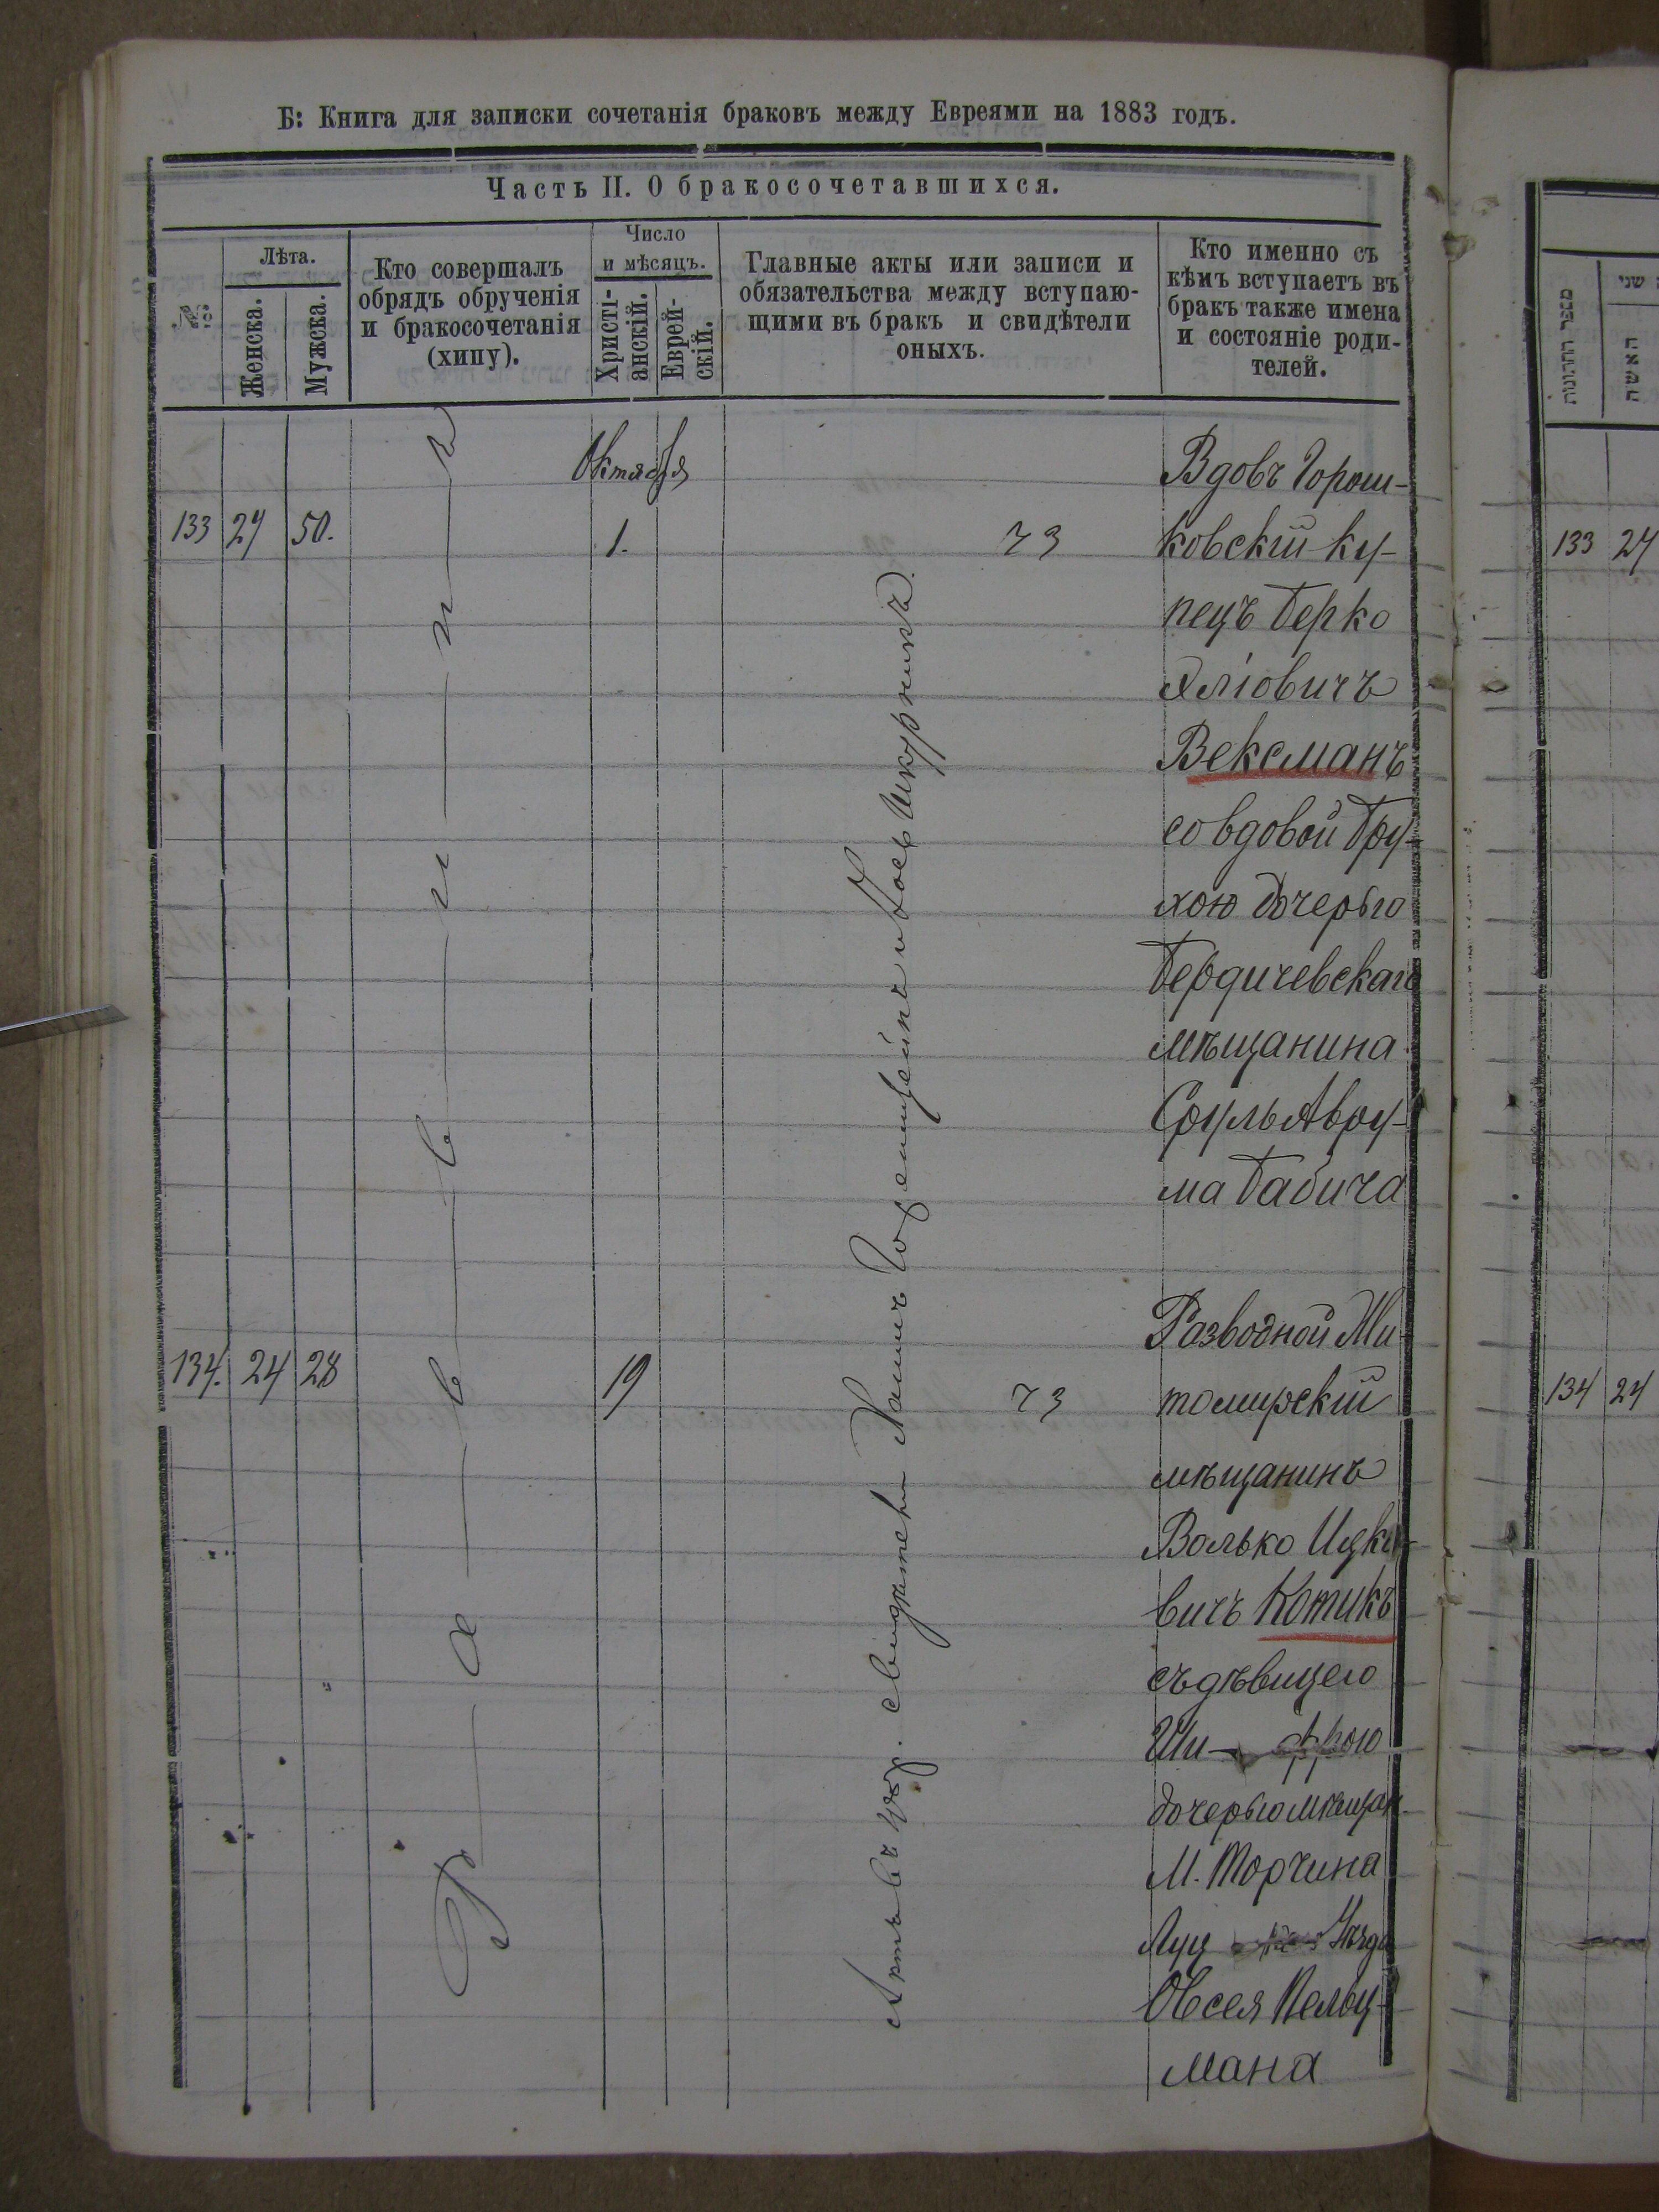 Б: Книга для записки сочетанія браковъ между Евреями на 1883 годъ.
Часть II. О бракосочетавшихся.
№№
Лѣта.
Женска.
Мужска.
Кто совершалъ
обрядъ обрученія
и бракосочетанія
(хипу).
Число
и мѣсяцъ.
Христі-
анскій.
Еврей-
скій.
Главные акты или записи и
обязательства между вступаю-
щими въ бракъ и свидѣтели
оныхъ.
Кто именно съ
кѣмъ вступаетъ въ
бракъ также имена
и состояніе роди-
телей.
Раввинъ
Октября
133 27 50. 1. 73
Вдовъ Горош-
ковскій ку-
пецъ Берко
Эліовичъ
Вексманъ
со вдовой Бру-
хою дочерью
Бердичевскаго
мѣщанина
Сруль Авру-
ма Бабича
134. 24 28 19 73
Разводной Жи-
томирскій
мѣщанинъ
Волько Ицко-
вичъ Котикъ
съ дѣвицею
Ши- фрою
дочерью мѣщан.
М. Торчина
Луц уѣзда
Овсея
мана
Актъ въ 75 р. свидѣтели
מספר החתונות
שני
האשה
133 27
134 24